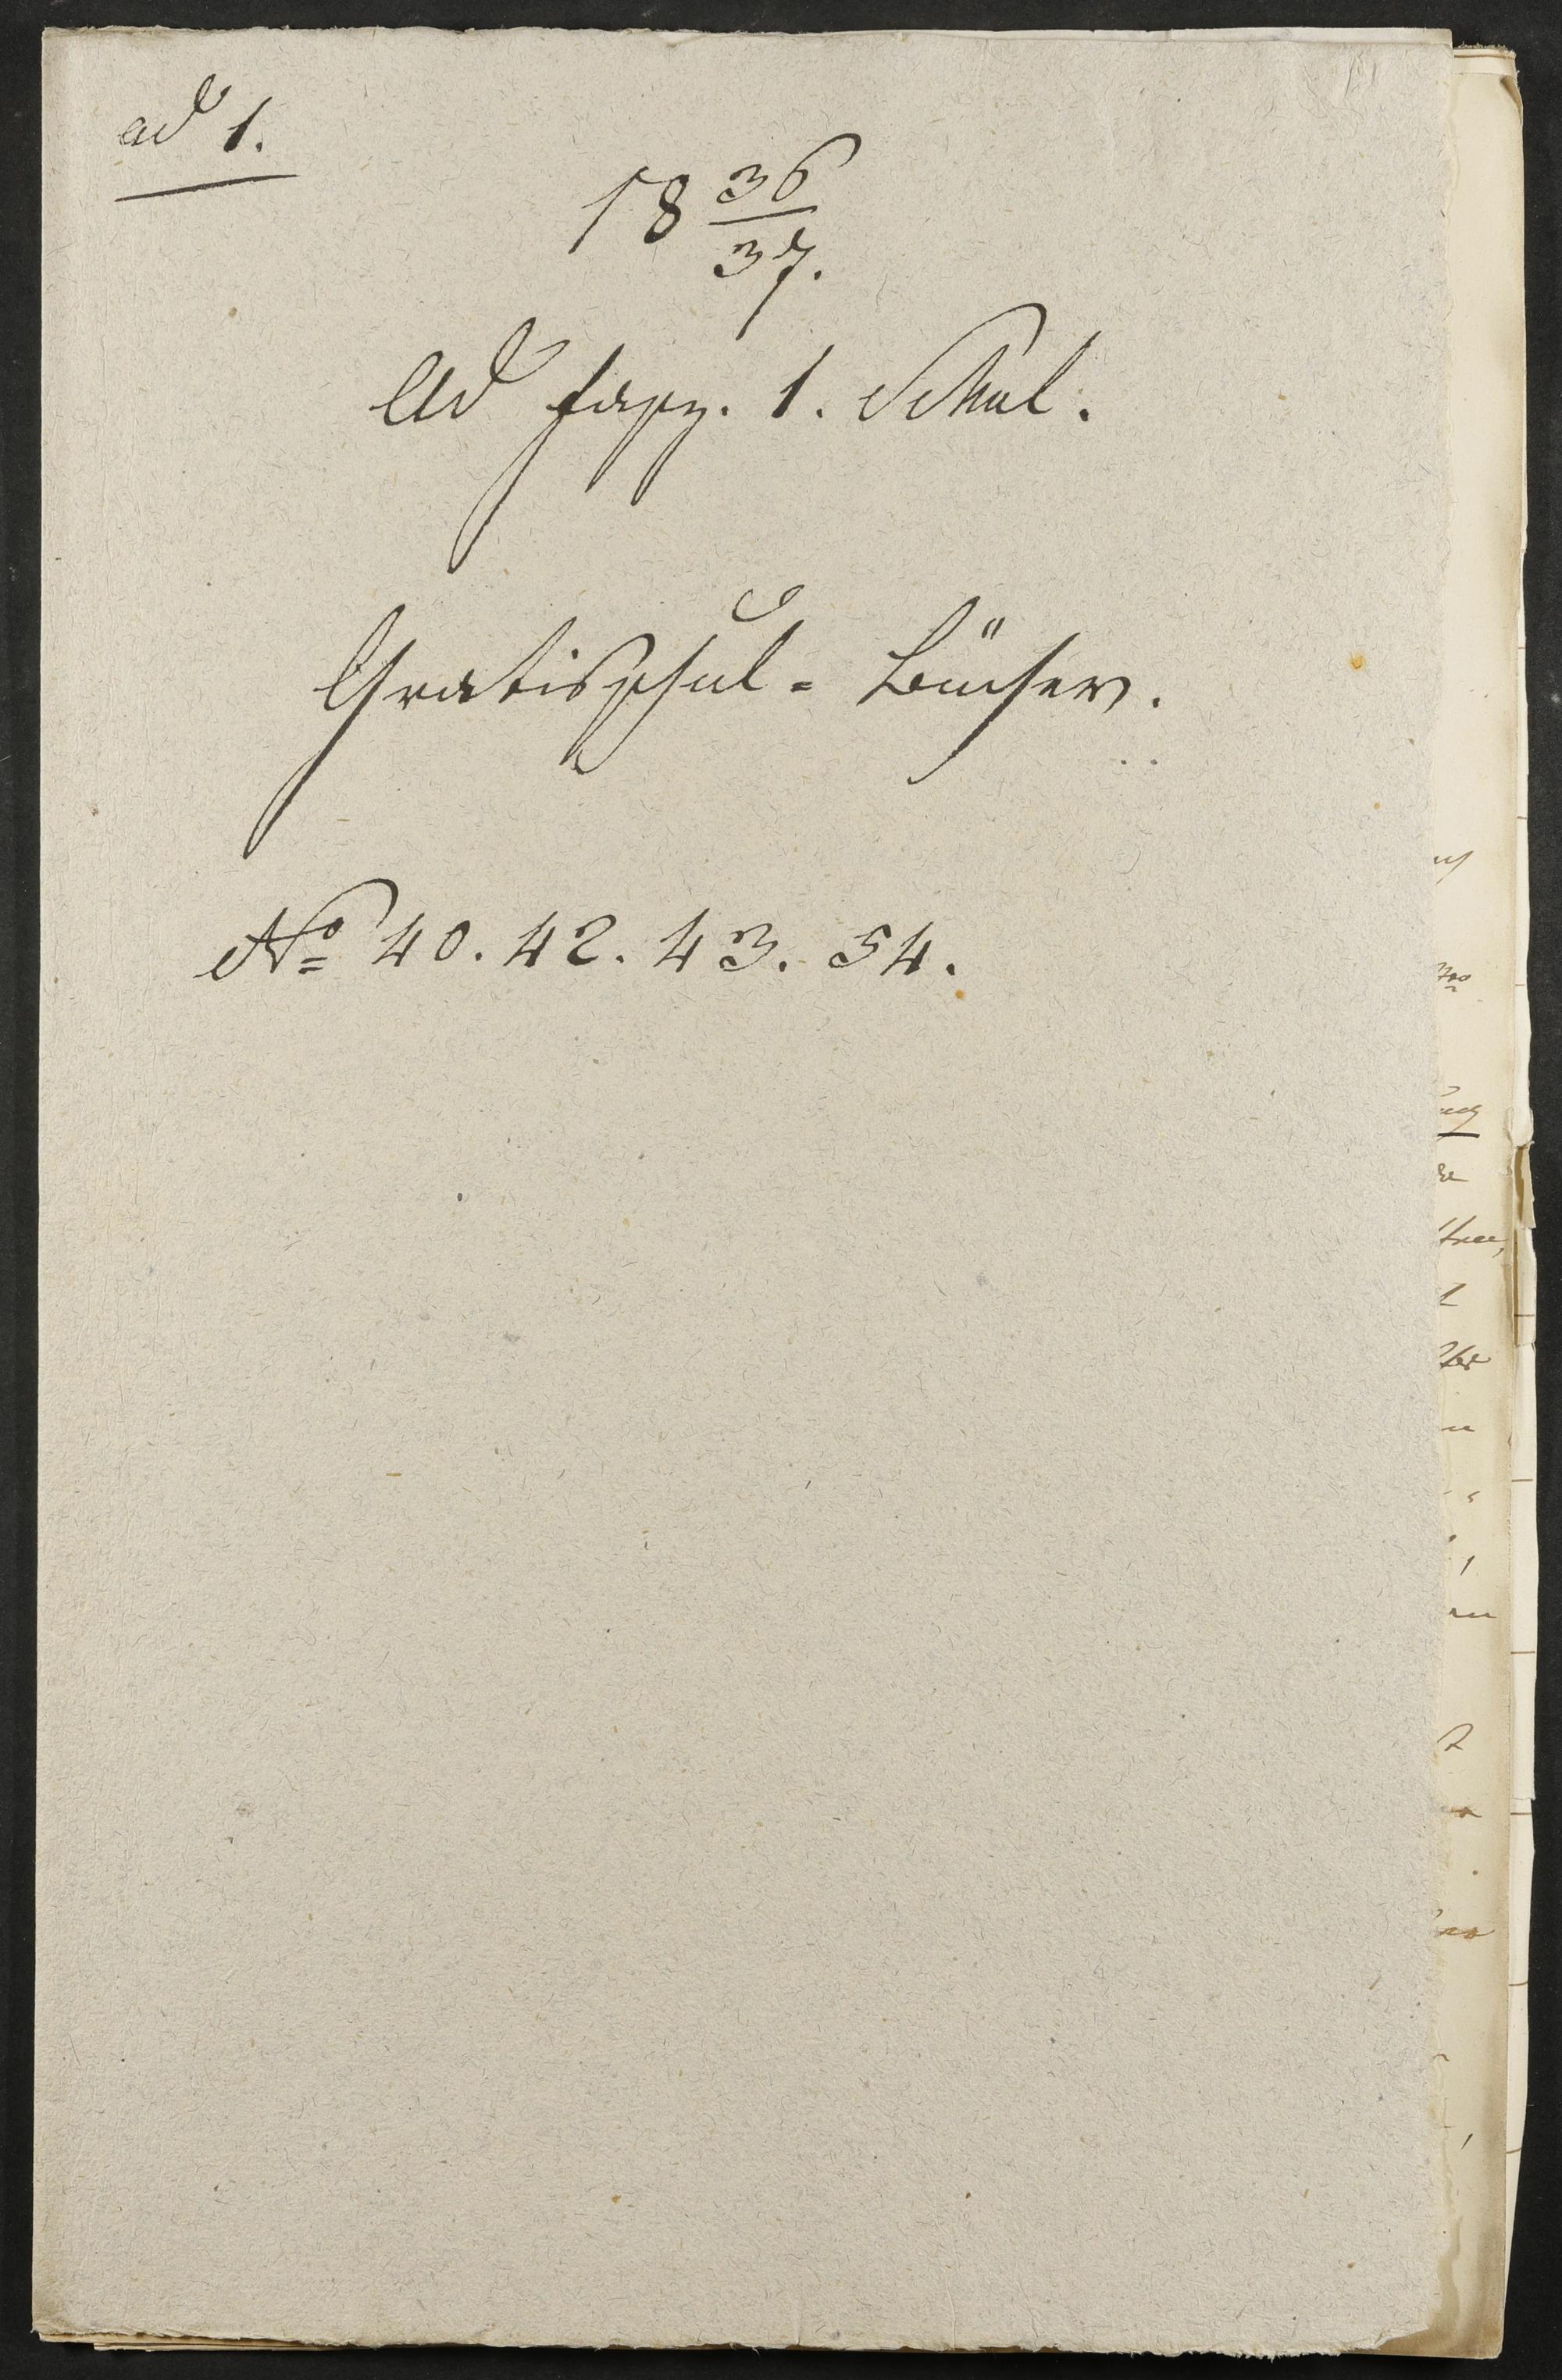 ad 1.
18 36/37.
Ad fasz. 1. Schul.
Gratisschul-Bücher.
No 40. 42. 43. 54.